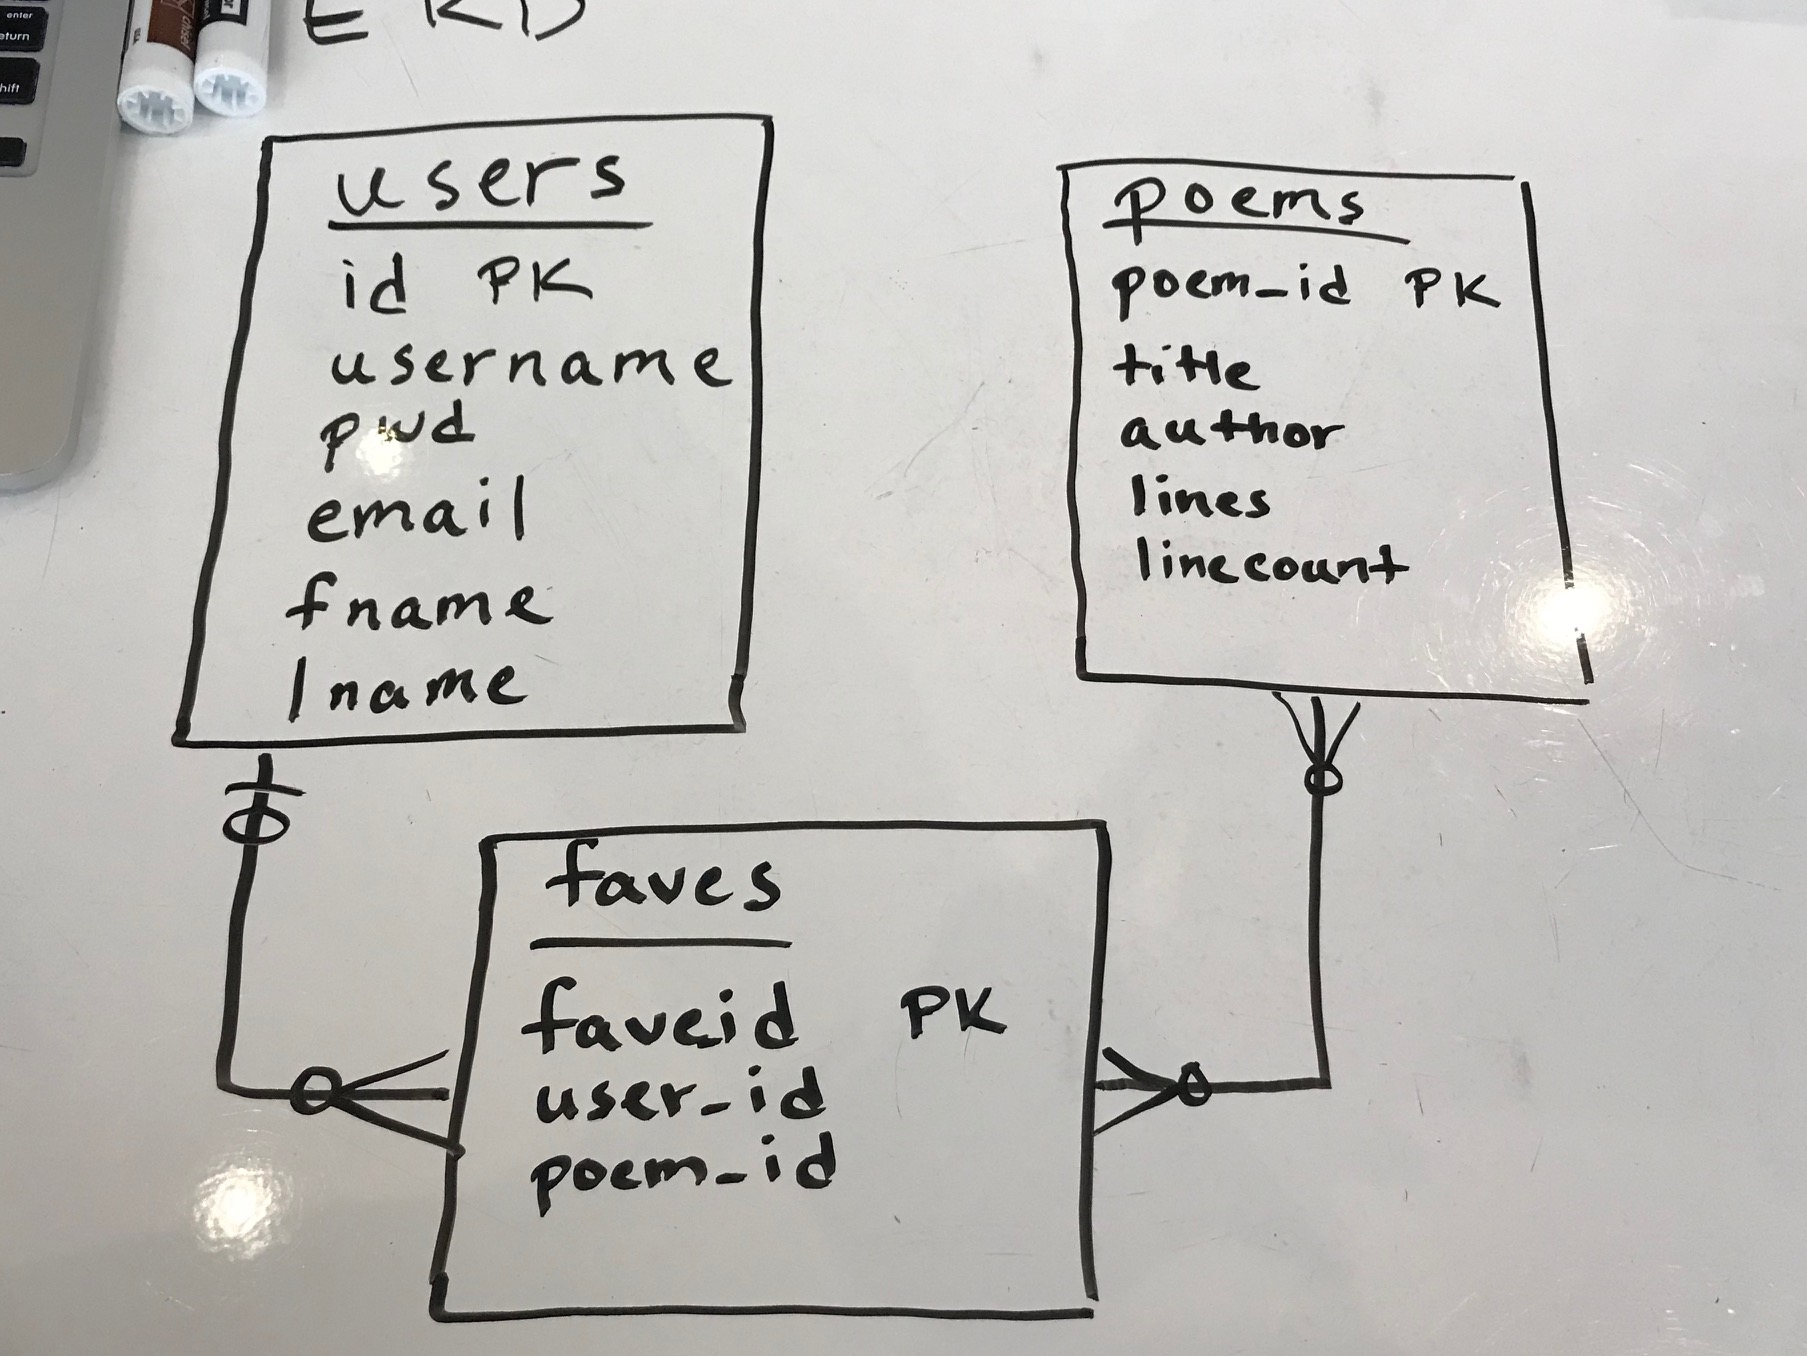 enter
return
shift
ERD
users
id PK
username
pwd
email
fname
lname
poems
poem_id PK
title
author
lines
linecount
faves
faveid PK
user_id
poem_id